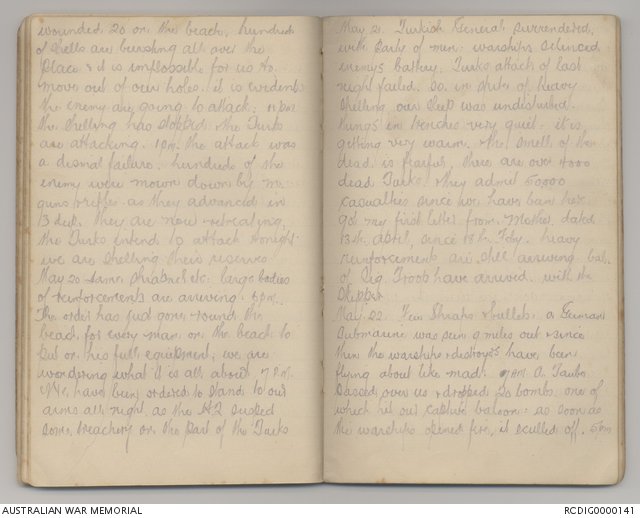 wounded 20 on the beach, hundreds
of shells are bursting all over the
place & it is impossible for us to
move out of our holes. it is evident
the enemy are going to attack.
the shelling has stopped & the Turks
are attacking. 1 pm. the attack was
a dismal failure. hundreds of the
enemy were mown down by m.
guns & rifles as they advanced in
13 deep. they are now retreating,
the Turks intend to attack tonight
we are shelling their reserves
May 20 Same shrapnel etc. large bodies
of reinforcements are arriving. 5 pm.
The order has just gone round the
beach for every man on the beach to
put on his full equipment. we are
wondering what it is all about. 7 P.m.
We have been ordered to stand to our
arms all night as the H.Q suspect
some treachery on the part of the Turks
May 21 Turkish General surrendered,
with party of men. warships silenced
enemy's battery. Turks attack of last
night failed. so in spite of heavy
shelling our sleep was undisturbed.
things in trenches very quiet. it is
getting very warm. the smell of the
dead is fearful, there are over 4000
dead Turks. they admit 50,000
casualties since we have been here
got my first letter from Mother, dated
13th April, since 18th Feby. heavy
reinforcements are still arriving
of Sig. Troop have arrived with the
Skipper
May 22. Few Shraps & bullets. a German
Submarine was seen 9 miles out & since
then the warships & destroyers have been
flying about like mad. 7 am. A Taube
passed over us & dropped 20 bombs. one of
which hit our captive baloon. as soon as
the warships opened fire, it sculled off. 5 pm
AUSTRALIAN WAR MEMORIAL
RCDIG0000141